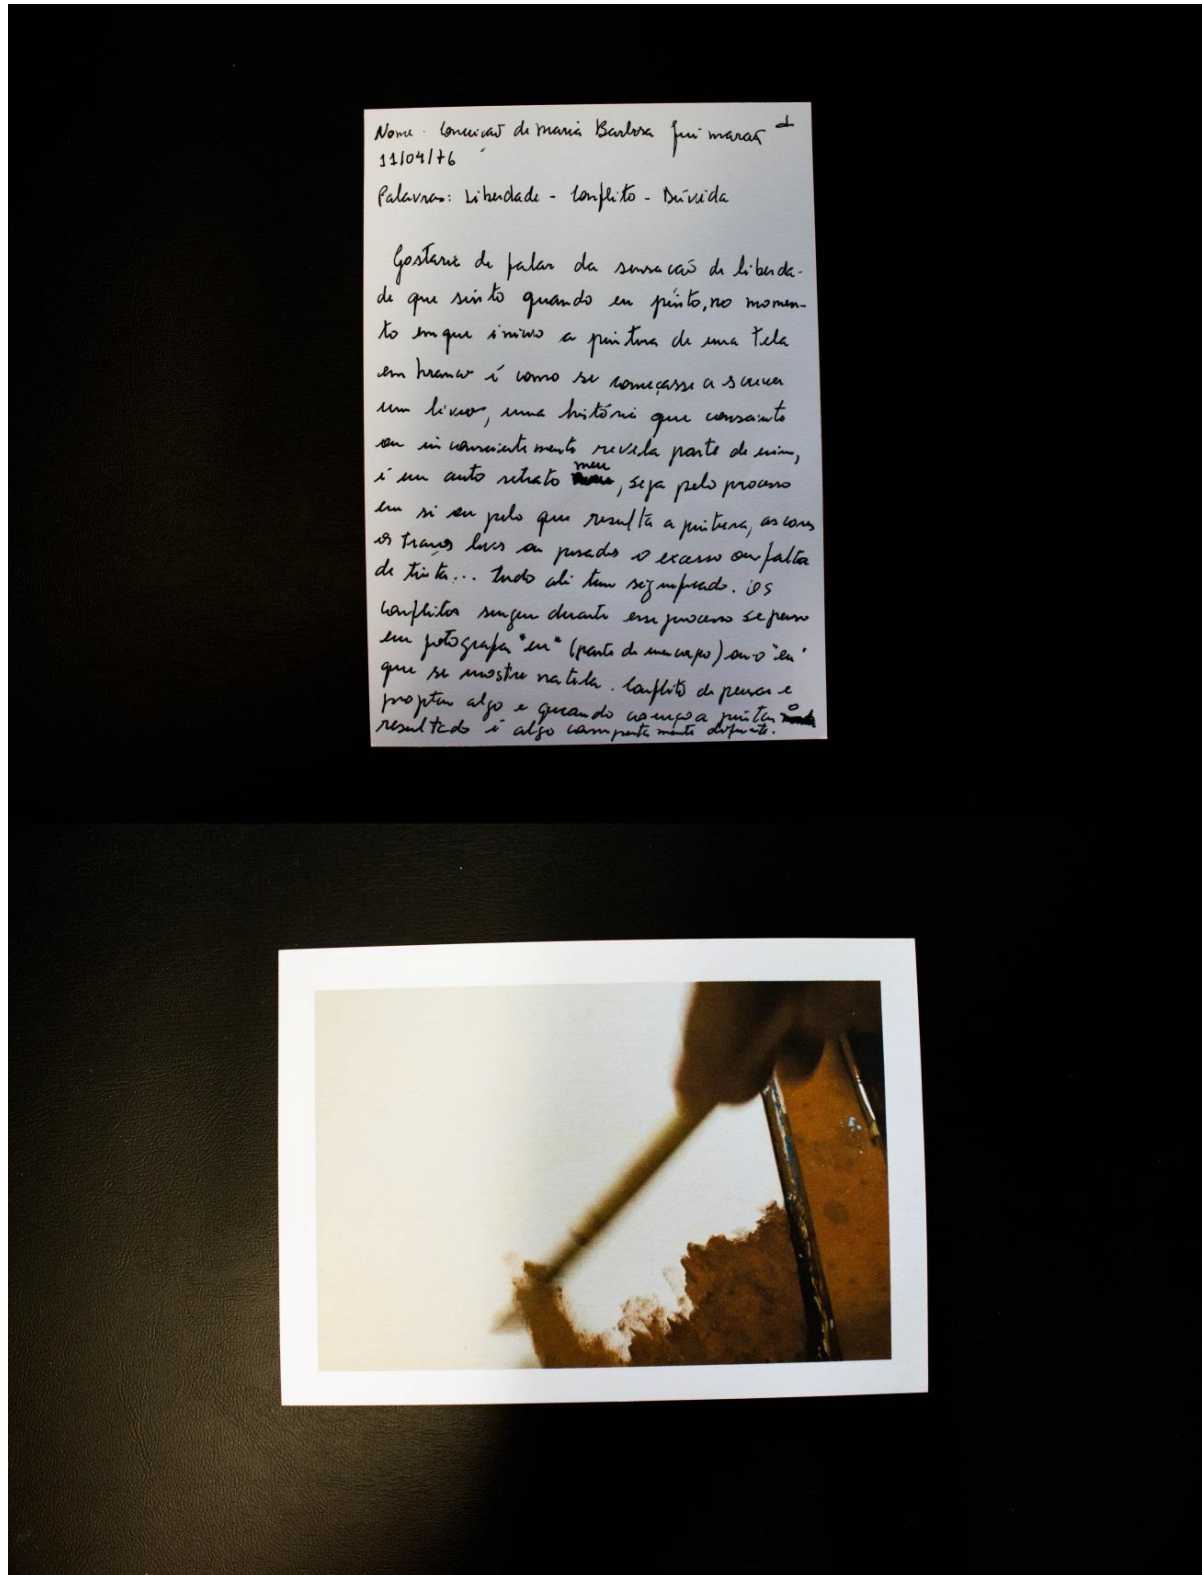 Nome - Conceição de Maria Barbosa Guimarães
11/04/76
Palavras: Liberdade - Conflito - Dúvida
Gostaria de falar da sensação de liberda-
de que sinto quando eu pinto, no momen-
to em que inicio a pintura de uma tela
em branco é como se começasse a screver
um livro, uma história que consciente
ou inconscientemente revela parte de mim,
é um auto retrato meu, seja pelo processo
em si ou pelo que resulta a pintura, as cores
os traços leves ou pesados o excesso ou falta
de tinta... tudo ali tem significado. Os
conflitos surgem durante esse processo se penso
em fotografar "eu" (parte do meu corpo) ou o "eu"
que se mostra na tela. Conflito de pensar e
algo e quando começo a pintar o
resultado é algo diferente.